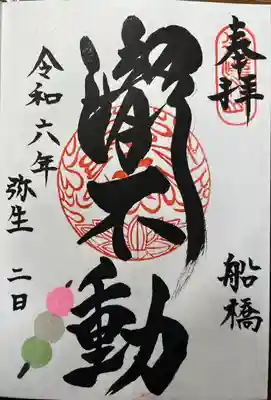 奉拝
船橋
御瀧不動
令和六年 弥生 二日